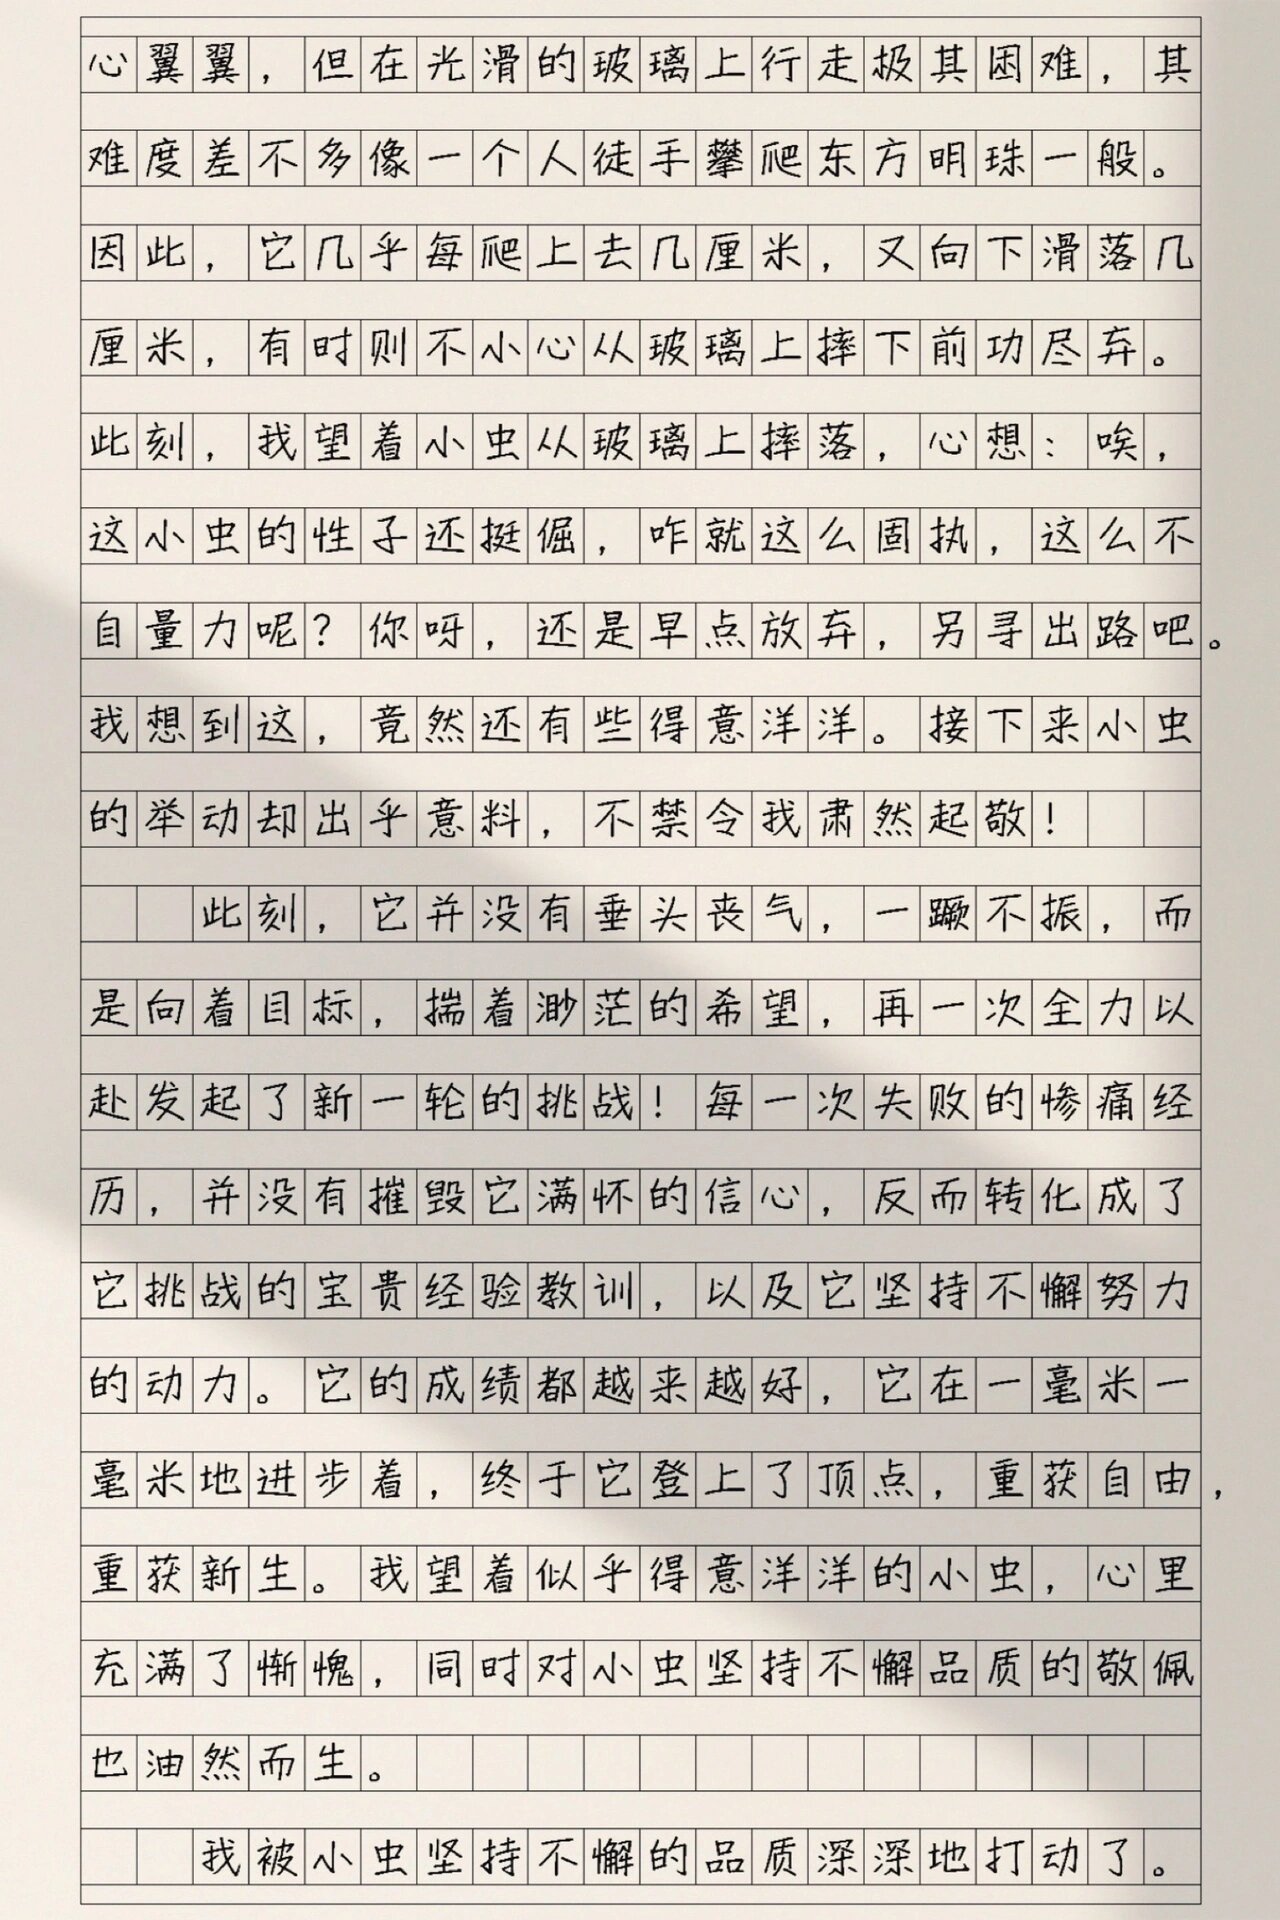 心翼翼，但在光滑的玻璃上行走极其困难，其
难度差不多像一个人徒手攀爬东方明珠一般。
因此，它几乎每爬上去几厘米，又向下滑落几
厘米，有时则不小心从玻璃上摔下前功尽弃。
此刻，我望着小虫从玻璃上摔落，心想：唉，
这小虫的性子还挺倔，咋就这么固执，这么不
自量力呢？你呀，还是早点放弃，另寻出路吧。
我想到这，竟然还有些得意洋洋。接下来小虫
的举动却出乎意料，不禁令我肃然起敬！
此刻，它并没有垂头丧气，一蹶不振，而
是向着目标，揣着渺茫的希望，再一次全力以
赴发起了新一轮的挑战！每一次失败的惨痛经
历，并没有摧毁它满怀的信心，反而转化成了
它挑战的宝贵经验教训，以及它坚持不懈努力
的动力。它的成绩都越来越好，它在一毫米一
毫米地进步着，终于它登上了顶点，重获自由，
重获新生。我望着似乎得意洋洋的小虫，心里
充满了惭愧，同时对小虫坚持不懈品质的敬佩
也油然而生。
我被小虫坚持不懈的品质深深地打动了。